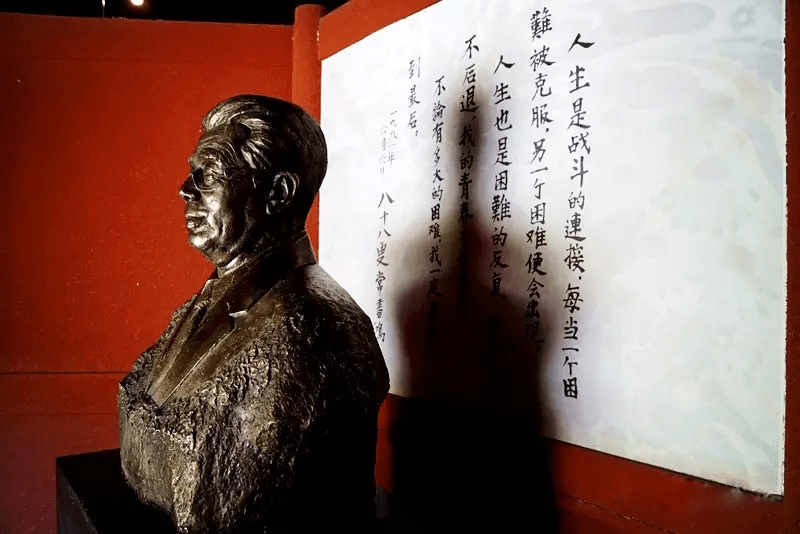 人生是战斗的連接，每当一个困
難被克服，另一个困难便会出現。
人生也是困難的反复，
不后退，我的青春
不論有多大的困难，我一定
到最后。
八十八叟常書鴻